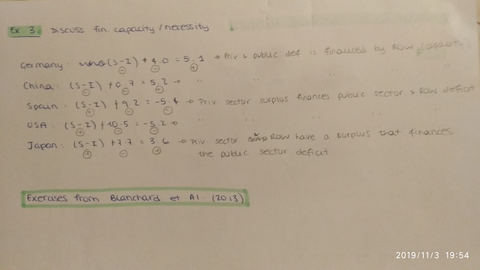 Ex 3. Discuss fin. capacity/necessity
Germany: (S-I) + 4.0 = 5.1 → Priv & public def is financed by Row capacity
China: (S-I) + 0.7 = 5.2 → " " " "
Spain: (S-I) + 9.2 = -5.4 → Priv sector surplus finances public sector & Row deficit
USA: (S-I) + 10.5 = -5.2 → " " " "
Japan: (S-I) + 7.7 = 3.6 → Priv sector & Row have a surplus that finances
the public sector deficit
Exercises from Blanchard et Al. (2013)
2019/11/3 19:54